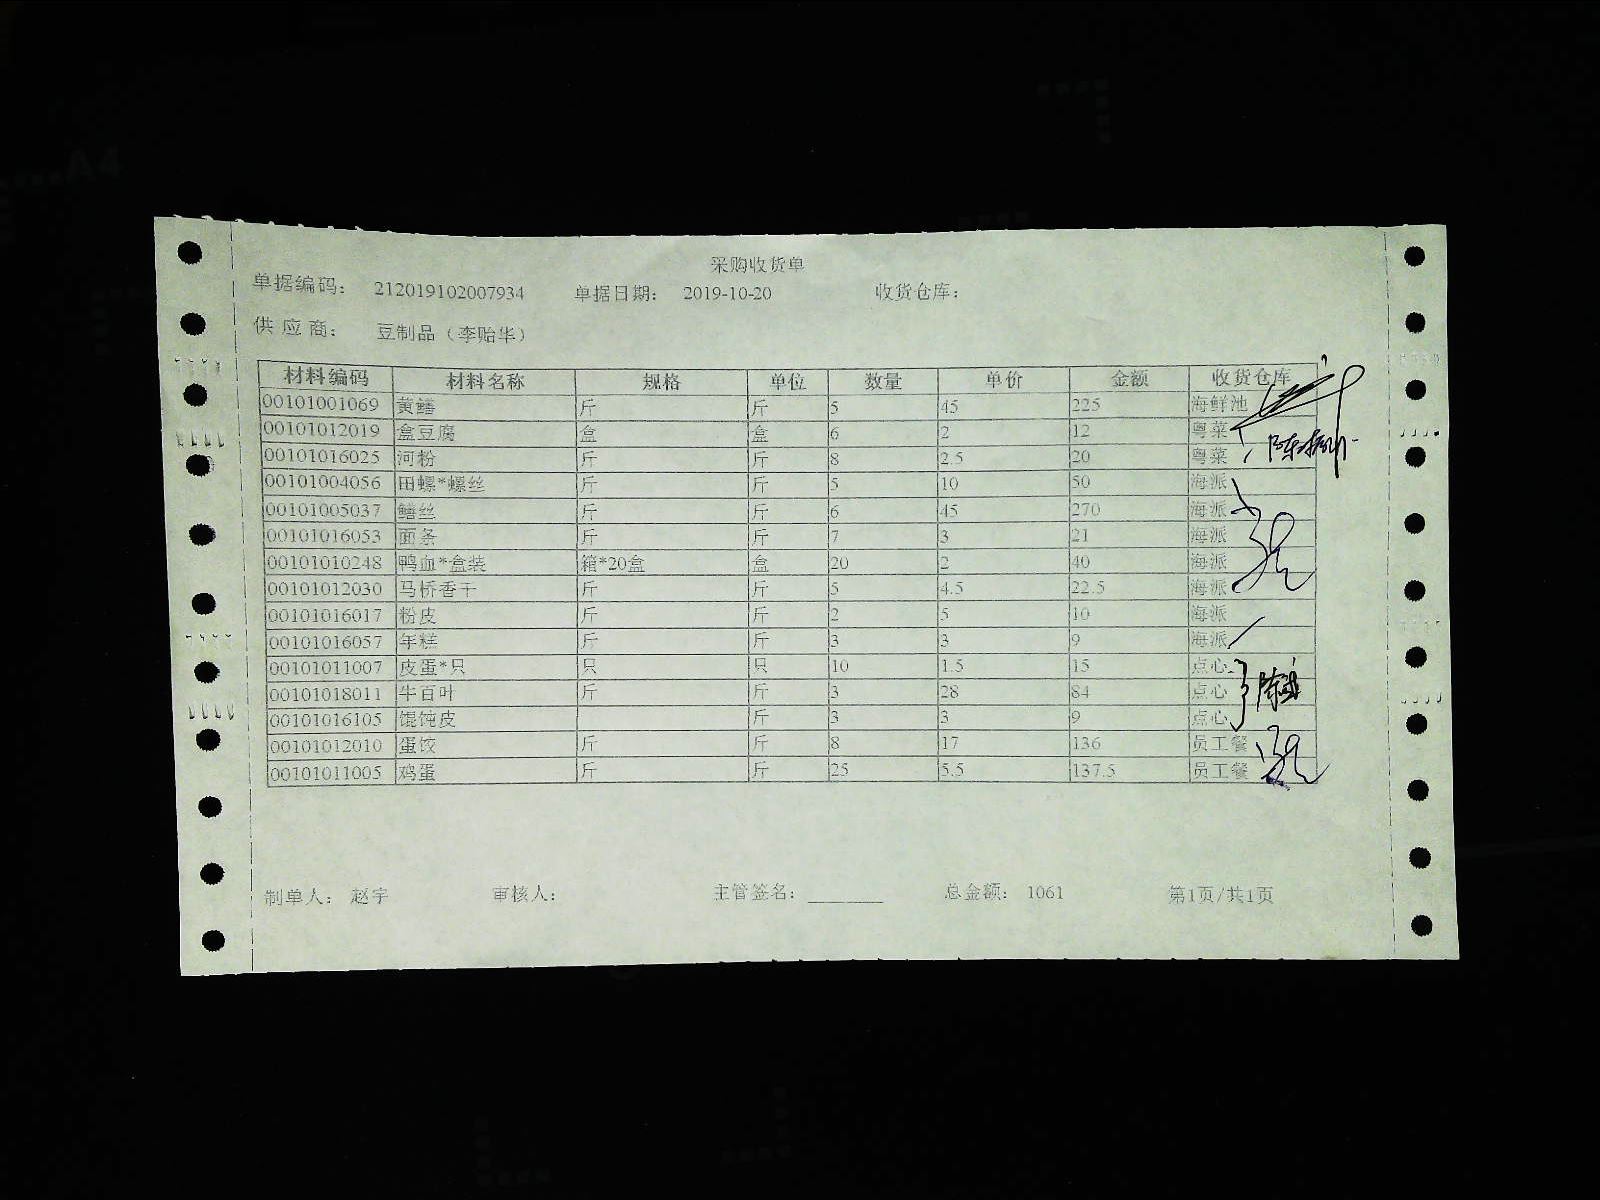 采购收货单
单据编码： 212019102007934 单据日期： 2019-10-20 收货仓库：
供 应 商： 豆制品（李贻华）
材料编码 材料名称 规格 单位 数量 单价 金额 收货仓库
00101001069 黄鳝 斤 斤 5 45 225 海鲜池
00101012019 盒豆腐 盒 盒 6 2 12 粤菜
00101016025 河粉 斤 斤 8 2.5 20 粤菜
00101004056 田螺*螺丝 斤 斤 5 10 50 海派
00101005037 鳝丝 斤 斤 6 45 270 海派
00101016053 面条 斤 斤 7 3 21 海派
00101010248 鸭血*盒装 箱*20盒 盒 20 2 40 海派
00101012030 马桥香干 斤 斤 5 4.5 22.5 海派
00101016017 粉皮 斤 斤 2 5 10 海派
00101016057 年糕 斤 斤 3 3 9 海派
00101011007 皮蛋*只 只 只 10 1.5 15 点心
00101018011 牛百叶 斤 斤 3 28 84 点心
00101016105 馄饨皮 斤 3 3 9 点心
00101012010 蛋饺 斤 斤 8 17 136 员工餐
00101011005 鸡蛋 斤 斤 25 5.5 137.5 员工餐
制单人： 赵宇 审核人： 主管签名：________ 总金额： 1061 第1页/共1页
A4